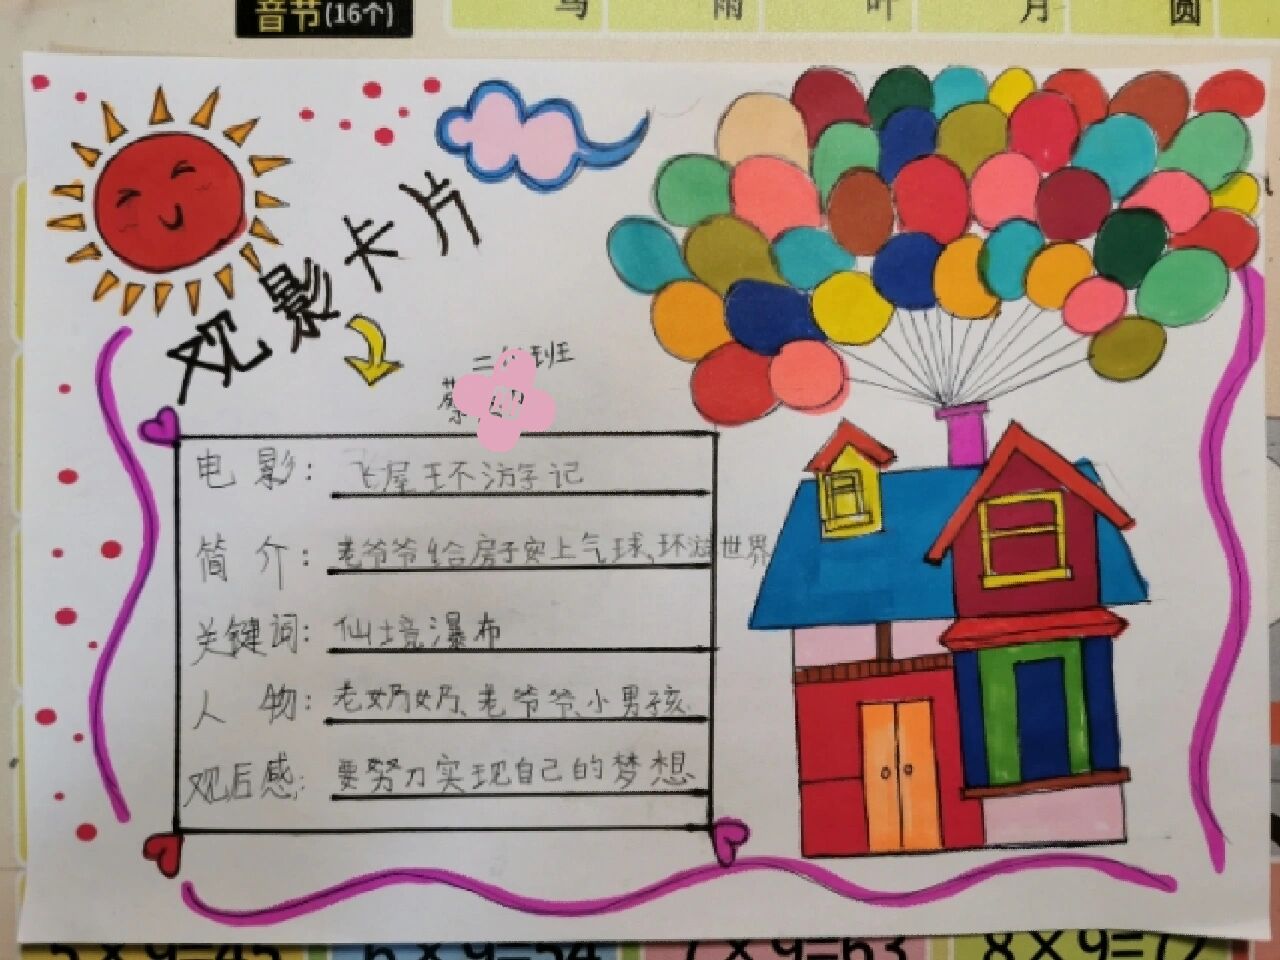 音节(16个)
鸟 雨 叶 月 圆
观影卡片
二 班
蔡
电影：飞屋环游记
简介：老爷爷给房子安上气球、环游世界
关键词：仙境瀑布
人物：老奶奶、老爷爷、小男孩
观后感：要努力实现自己的梦想
5×9=45 6×9=54 7×9=63 8×9=72